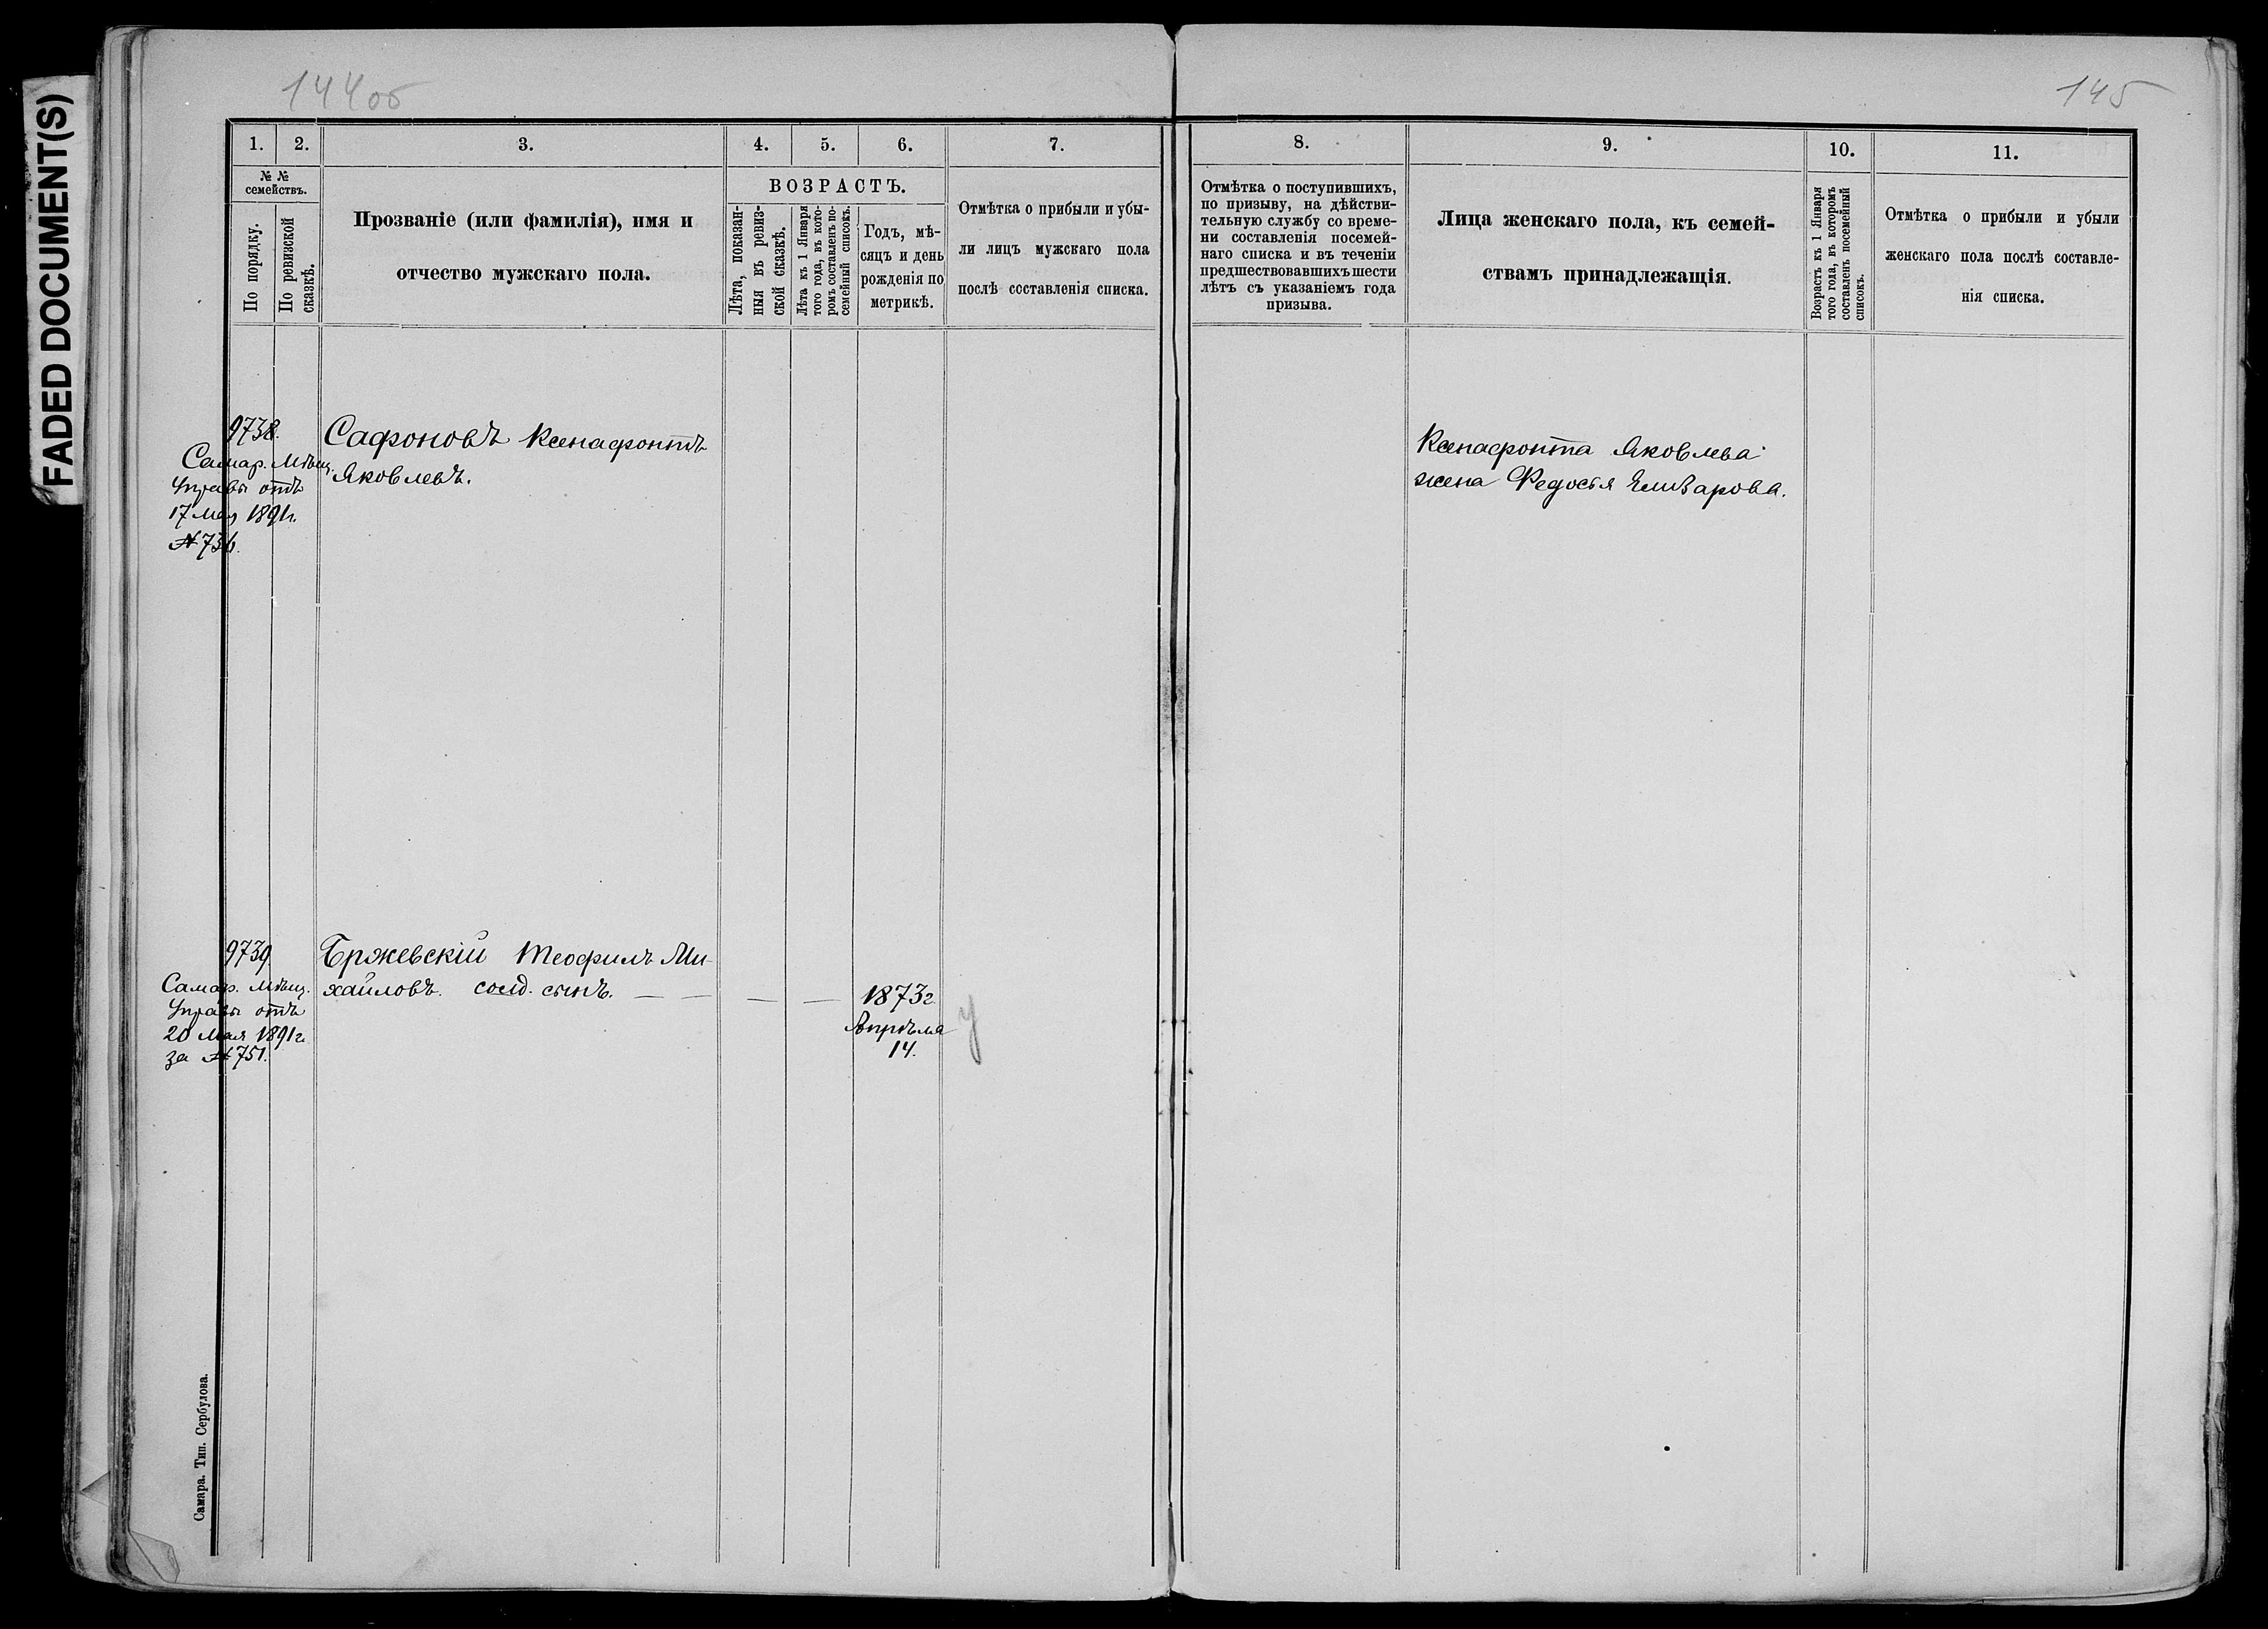 FADED DOCUMENT(S)
144об
145
1.
2.
3.
4.
5.
6.
7.
8.
9.
10.
11.
№ №
семействъ.
По порядку.
По ревизской
сказкѣ.
Прозваніе (или фамилія), имя и
отчество мужскаго пола.
ВОЗРАСТЪ.
Лѣта, показан-
ныя въ ревиз-
ской сказкѣ.
Лѣта къ 1 Января
того года, въ кото-
ромъ составленъ по-
семейный списокъ.
Годъ, мѣ-
сяцъ и день
рожденія по
метрикѣ.
Отмѣтка о прибыли и убы-
ли лицъ мужскаго пола
послѣ составленія списка.
Отмѣтка о поступившихъ,
по призыву, на дѣйстви-
тельную службу со време-
ни составленія посемей-
наго списка и въ теченіи
предшествовавшихъ шести
лѣтъ съ указаніемъ года
призыва.
Лица женскаго пола, къ семей-
ствамъ принадлежащія.
Возрастъ къ 1 Января
того года, въ которомъ
составленъ посемейный
списокъ.
Отмѣтка о прибыли и убыли
женскаго пола послѣ составле-
нія списка.
9738.
Самар. Мѣщ.
Управы отъ
17 Мая 1891г.
№ 736.
Сафоновъ Ксенафонтъ
Яковлевъ.
Ксенафонта Яковлева
жена Федосья Елизарова.
9739
Самар. Мѣщ.
Управы отъ
20 Мая 1891г.
за № 751.
Бржевскій Теофилъ Ми-
хайловъ. солд. сынъ. — — — —
1873г.
Апрѣля
14.
у
Самара. Тип. Сербулова.